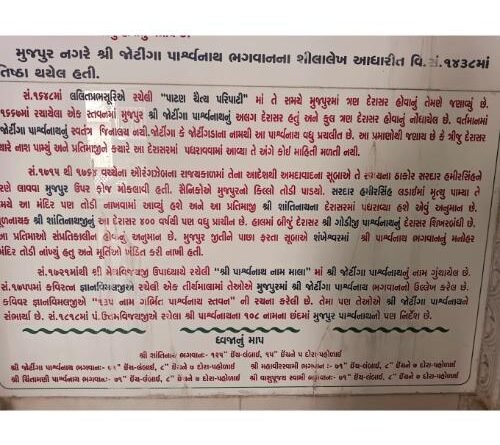 મુજપુર નગરે શ્રી જોટીંગા પાર્શ્વનાથ ભગવાનના શીલાલેખ આધારીત વિ.સં.૧૪૩૮માં
તિષ્ઠા થયેલ હતી.
સં.૧૬૪૮માં લલિતપ્રભસૂરિએ રચેલી "પાટણ ચૈત્ય પરિપાટી" માં તે સમયે મુજપુરમાં ત્રણ દેરાસર હોવાનું તેમણે જણાવ્યું છે.
૧૬૬૭માં રચાયેલા એક સ્તવનમાં મુજપુર શ્રી જોટીંગા પાર્શ્વનાથનું અલગ દેરાસર હતું અને કુલ ત્રણ દેરાસર હોવાનું નોંધાયેલ છે. વર્તમાનમાં
જોટીંગા પાર્શ્વનાથનું સ્વતંત્ર જિનાલય નથી.જોટીંગા કે જોટીંગડાના નામથી આ પાર્શ્વનાથ વધુ પ્રચલીત છે. આ પ્રમાણોથી જણાય છે કે ત્રીજુ દેરાસર
યારે નાશ પામ્યું અને પ્રતિમાજીને ક્યારે આ દેરાસરમાં પધરાવવામાં આવ્યા તે અંગે કોઈ માહિતી મળતી નથી.
સં.૧૭૧૫ થી ૧૭૬૪ વચ્ચેના ઔરંગઝેબના રાજ્યકાળમાં તેના આદેશથી અમદાવાદના સૂબાએ તે સમયના ઠાકોર સરદાર હમીરસિંહને
રણે લાવવા મુજપુર ઉપર ફોજ મોકલાવી હતી. સૈનિકોએ મુજપુરનો કિલ્લો તોડી પાડયો. સરદાર હમીરસિંહ લડાઈમાં મૃત્યુ પામ્યા તે
મયે આ મંદિર પણ તોડી નાખવામાં આવ્યું હશે અને આ પ્રતિમાજી શ્રી શાંતિનાથના દેરાસરમાં પધરાવ્યા હશે એવું અનુમાન છે.
ળનાયક શ્રી શાંતિનાથજીનું આ દેરાસર ૪૦૦ વર્ષથી પણ વધુ પ્રાચીન છે. હાલમાં બીજું દેરાસર શ્રી ગોડીજી પાર્શ્વનાથનું દેરાસર શિખરબંધી છે.
આ પ્રતિમાઓ સંપ્રતિકાલીન હોવાનું અનુમાન છે. મુજપુર જીતીને પાછા ફરતા સૂબાએ શંખેશ્વરમાં શ્રી પાર્શ્વનાથ ભગવાનનું મનોહર
મંદિર તોડી નાંખ્યું હતું અને મૂર્તિઓ ખંડિત કરી નાખી હતી.
સં.૧૭૨૧માંથી શ્રી મેઘવિજયજી ઉપાધ્યાયે રચેલી "શ્રી પાર્શ્વનાથ નામ માલા" માં શ્રી જોટીંગા પાર્શ્વનાથનું નામ ગુંથાયેલ છે.
સં.૧૭૫૫માં કવિરત્ન જ્ઞાનવિમલજીએ રચેલી એક તીર્થમાલામાં તેઓએ મુજપુરમાં શ્રી જોટીંગા પાર્શ્વનાથ ભગવાનનો ઉલ્લેખ કરેલ છે.
કવિવર જ્ઞાનવિમલજીએ "૧૩૫ નામ ગર્ભિત પાર્શ્વનાથ સ્તવન" ની રચના કરેલી છે. તેમાં પણ તેઓએ શ્રી જોટીંગા પાર્શ્વનાથને
સંભાર્યા છે. સં.૧૮૮૧માં પં.ઉત્તમવિજયજીએ રચેલા શ્રી પાર્શ્વનાથના ૧૦૮ નામના છંદમાં મુજપુર પાર્શ્વનાથનો પણ નિર્દેશ છે.
ધ્વજાનું માપ
શ્રી શાંતિનાથ ભગવાન :- ૧૨૧" ઈંચ-લંબાઈ, ૧૫" ઈંચને ૫ દોરા-પહોળાઈ
શ્રી જોટીંગા પાર્શ્વનાથ ભગવાન :- ૭૧" ઈંચ-લંબાઈ, ૮" ઈંચને ૭ દોરા-પહોળાઈ શ્રી મહાવીરસ્વામી ભગવાન :- ૭૧" ઈંચ-લંબાઈ, ૮" ઈંચને ૭ દોરા-પહોળાઈ
શ્રી ચિંતામણી પાર્શ્વનાથ ભગવાન :- ૭૧" ઈંચ-લંબાઈ, ૮" ઈંચને ૭ દોરા-પહોળાઈ શ્રી વાસુપૂજ્ય સ્વામી ભગવાન :- ૭૧" ઈંચ-લંબાઈ, ૮" ઈંચને ૭ દોરા-પહોળાઈ